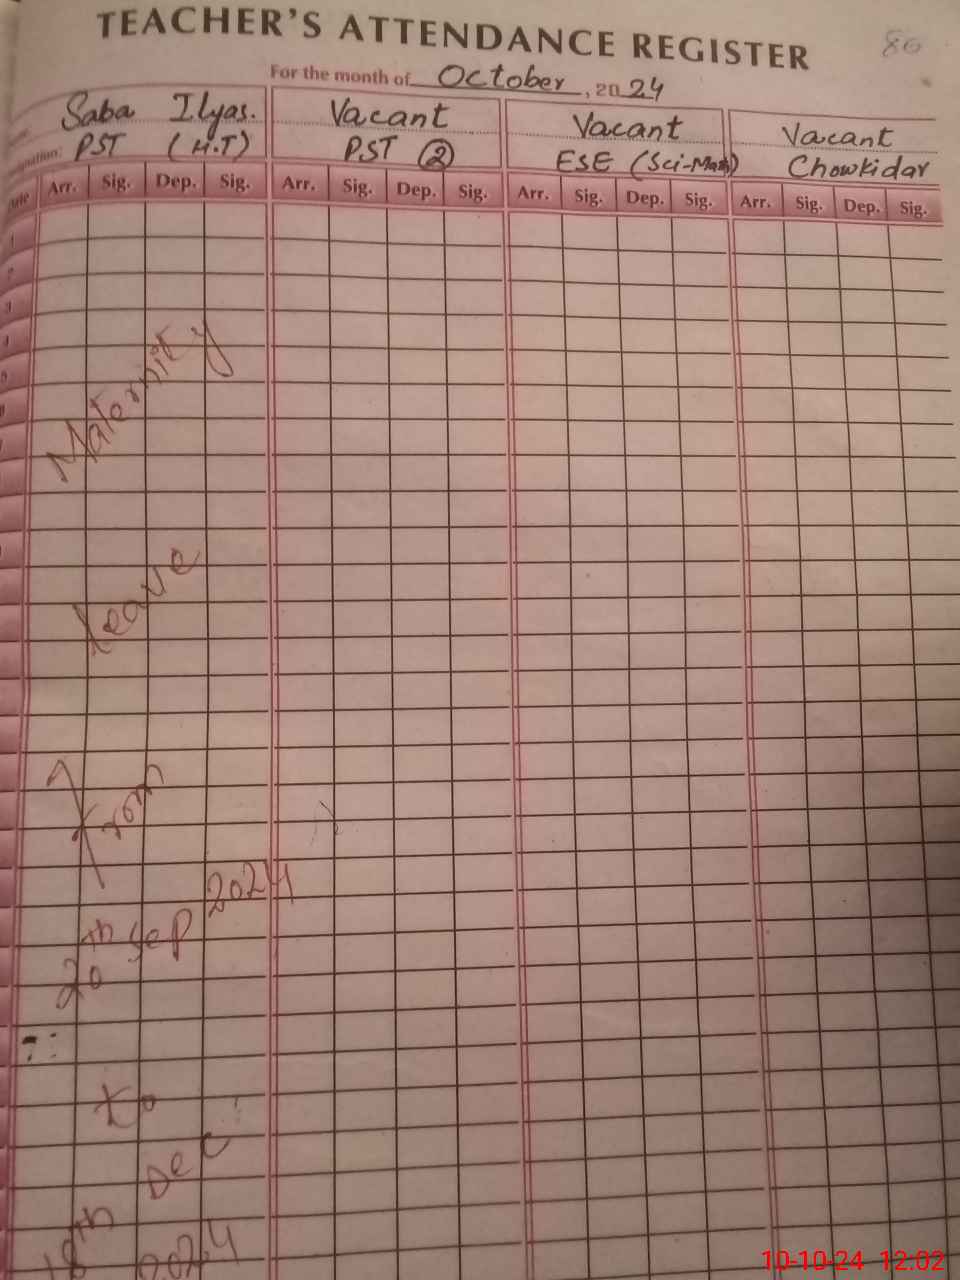 TEACHER'S ATTENDANCE REGISTER
80
For the month of October, 2024
Saba Ilyas. Vacant Vacant Vacant
PST (H.T) PST (2) ESE (Sci-Math) Chowkidar
Arr. Sig. Dep. Sig. Arr. Sig. Dep. Sig. Arr. Sig. Dep. Sig. Arr. Sig. Dep. Sig.
1
2
3
4
5
Maternity
leave
from
20th Sep 2024
to
18th Dec
2024
10-10-24 12:02